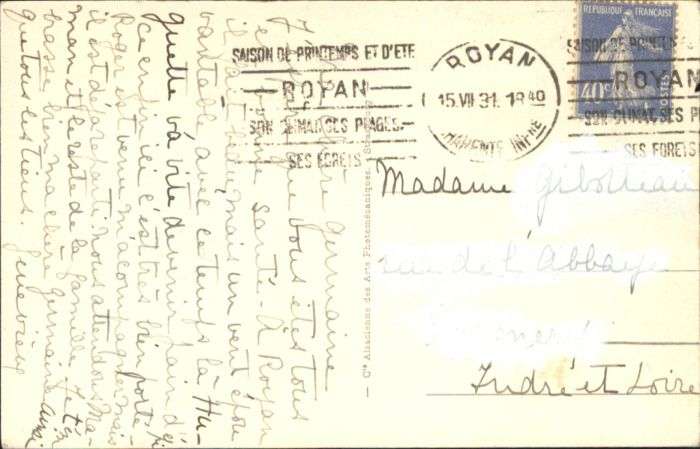 SAISON DE PRINTEMPS ET D'ETE
ROYAN
SON CLIMAT SES PLAGES
SES FORETS
ROYAN
15.VII 31. 1840
CHARENTE INFRE
REPUBLIQUE FRANÇAISE
40c
POSTES
SAISON DE PRINTEMPS
ROYAN
SON CLIMAT SES P
SES FORETS
Germaine
que vous êtes tous
bonne santé. À Royan
il fait mais un vent épou
vantable avec ce temps là Hu-
guette va vite devenir pain d'é
ce enfin ici c'est très bien porté.
Roger est venu m'accompagner mais
il est déjà reparti. Nous attendons Ma-
man et le reste de la famille. Je t'em
brasse bien ma chère Germaine ainsi
que tous les tiens. Geneviève
Cie Alsacienne des Arts Photomécaniques
Madame
rue de l'Abbaye
Indre et Loire